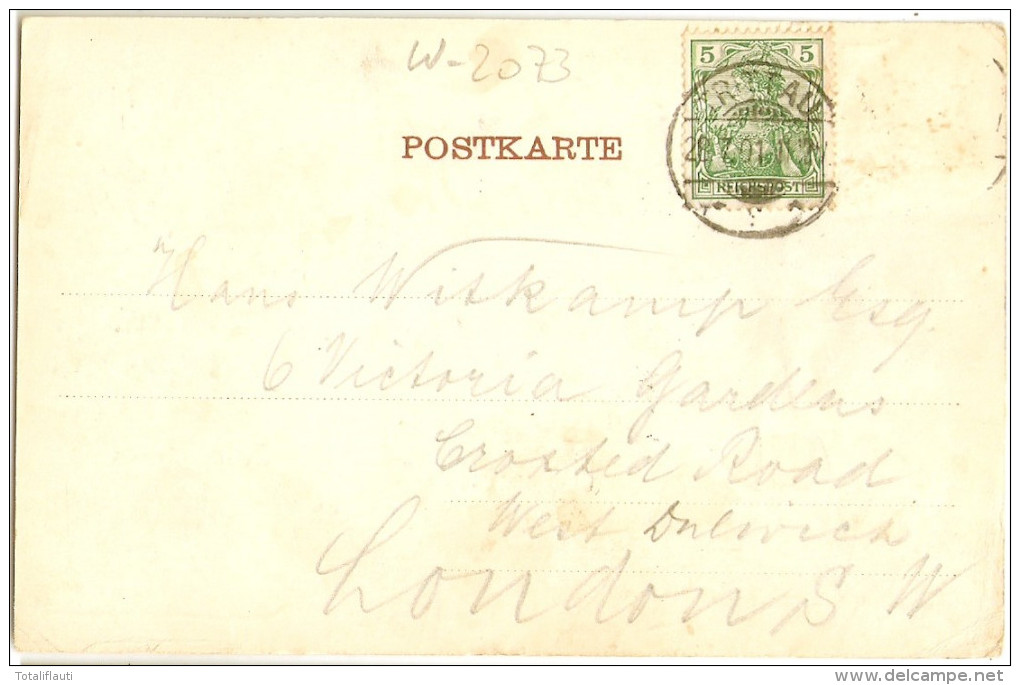 W-2073
POSTKARTE
5 5
REICHSPOST
Hans Witkamp Esq.
6 Victoria Gardens
Croxted Road
West Dulwich
London S W
Totaliflauti
delcampe.net